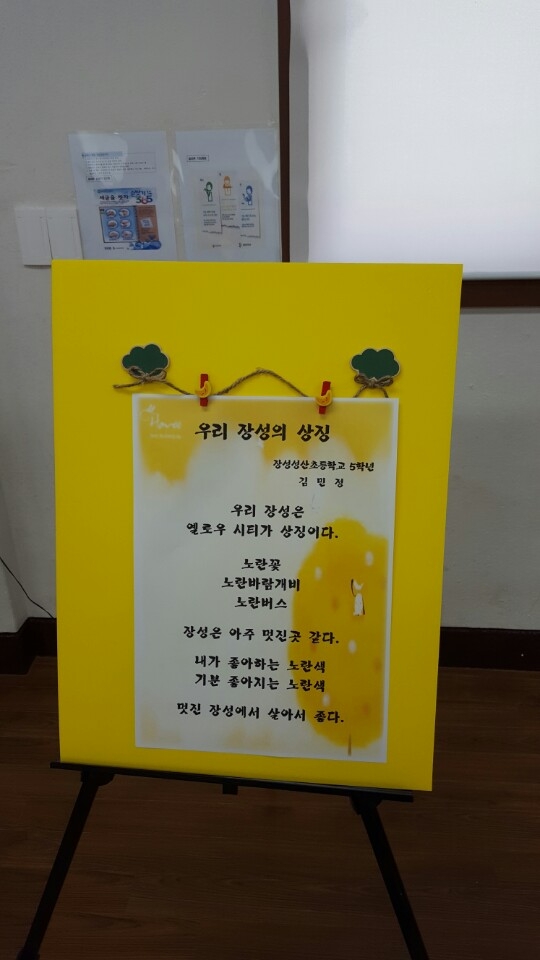 우리 장성의 상징
장성성산초등학교 5학년
김 민 정
우리 장성은
옐로우 시티가 상징이다.
노란꽃
노란바람개비
노란버스
장성은 아주 멋진곳 같다.
내가 좋아하는 노란색
기분 좋아지는 노란색
멋진 장성에서 살아서 좋다.